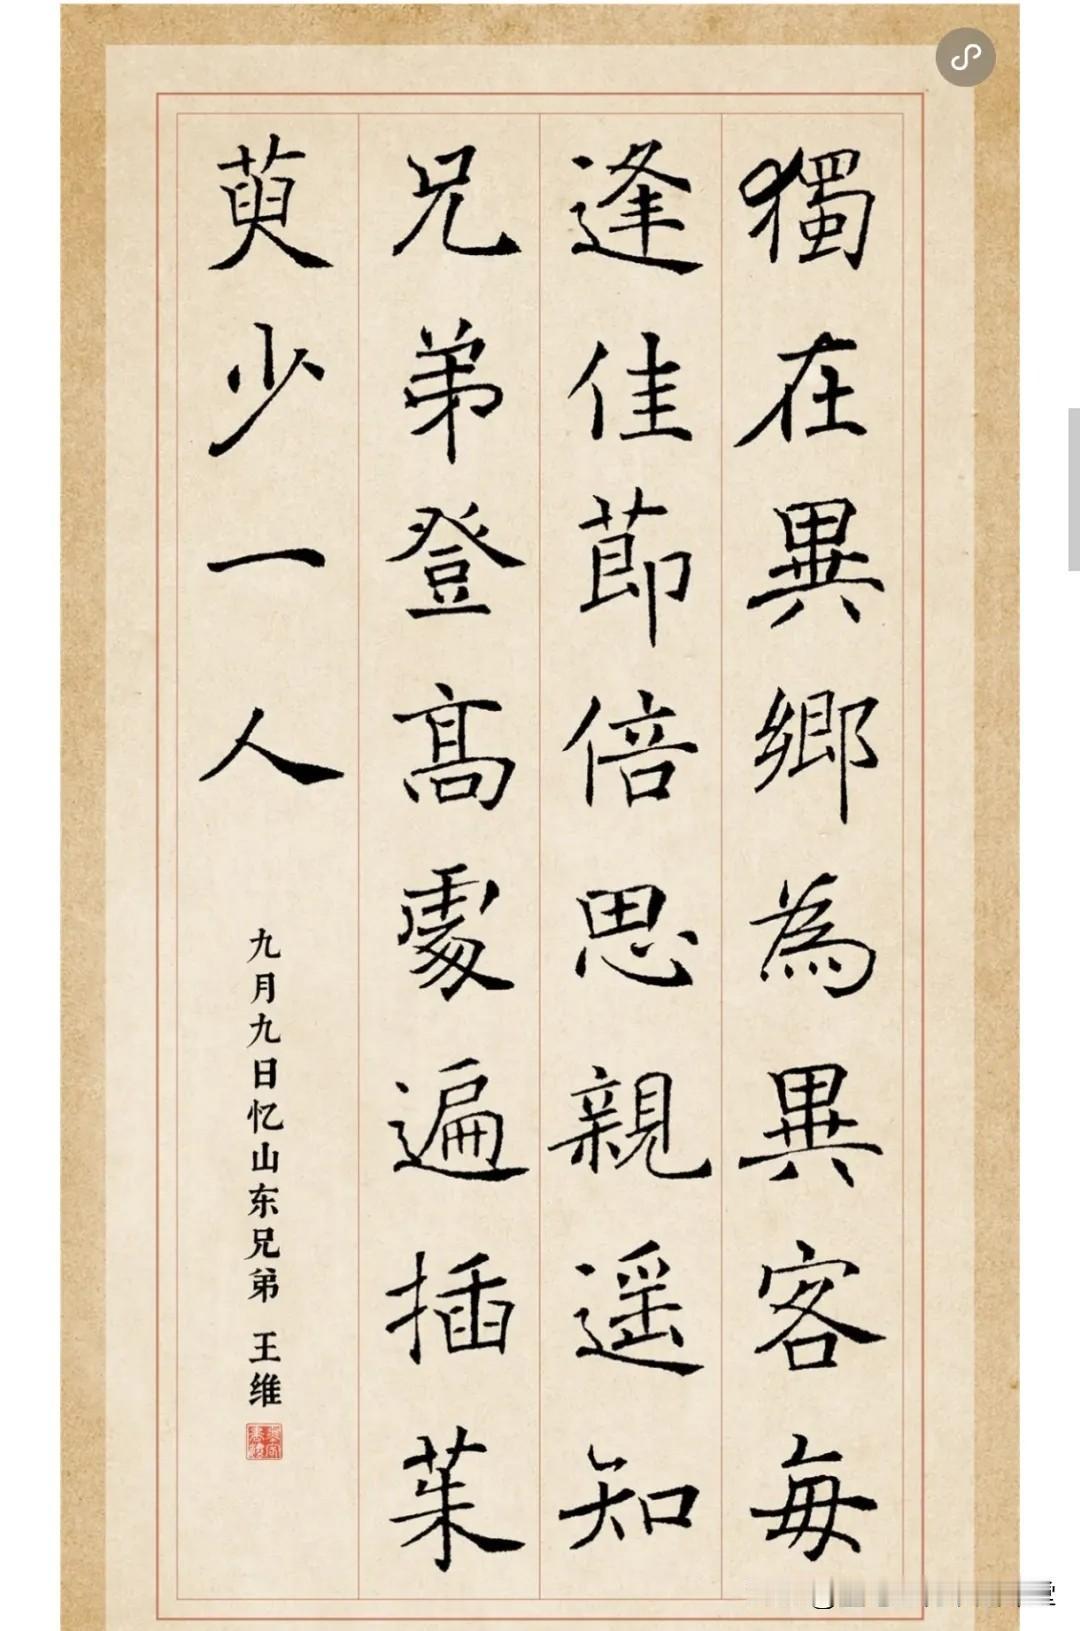 獨在異鄉為異客每
逢佳節倍思親遥知
兄弟登高處遍插茱
萸少一人
九月九日忆山东兄弟 王维